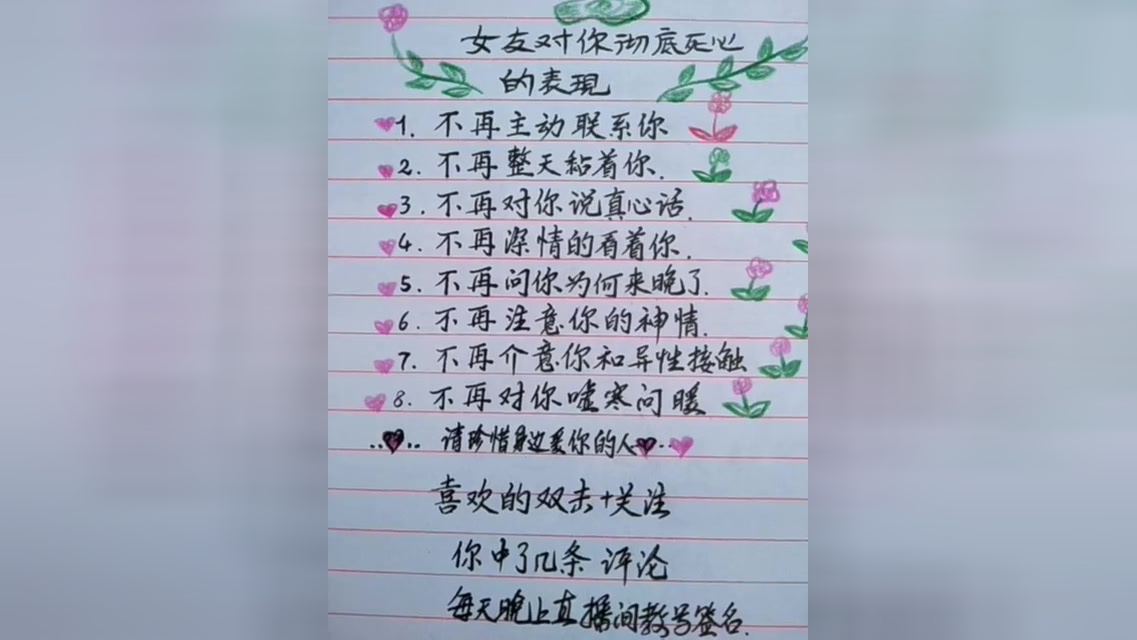 女友对你彻底死心
的表现
1. 不再主动联系你
2. 不再整天粘着你.
3. 不再对你说真心话.
4. 不再深情的看着你.
5. 不再问你为何来晚了.
6. 不再注意你的神情.
7. 不再介意你和异性接触
8. 不再对你嘘寒问暖
请珍惜身边爱你的人
喜欢的双击+关注
你中了几条 评论
每天晚上直播间教号签名.